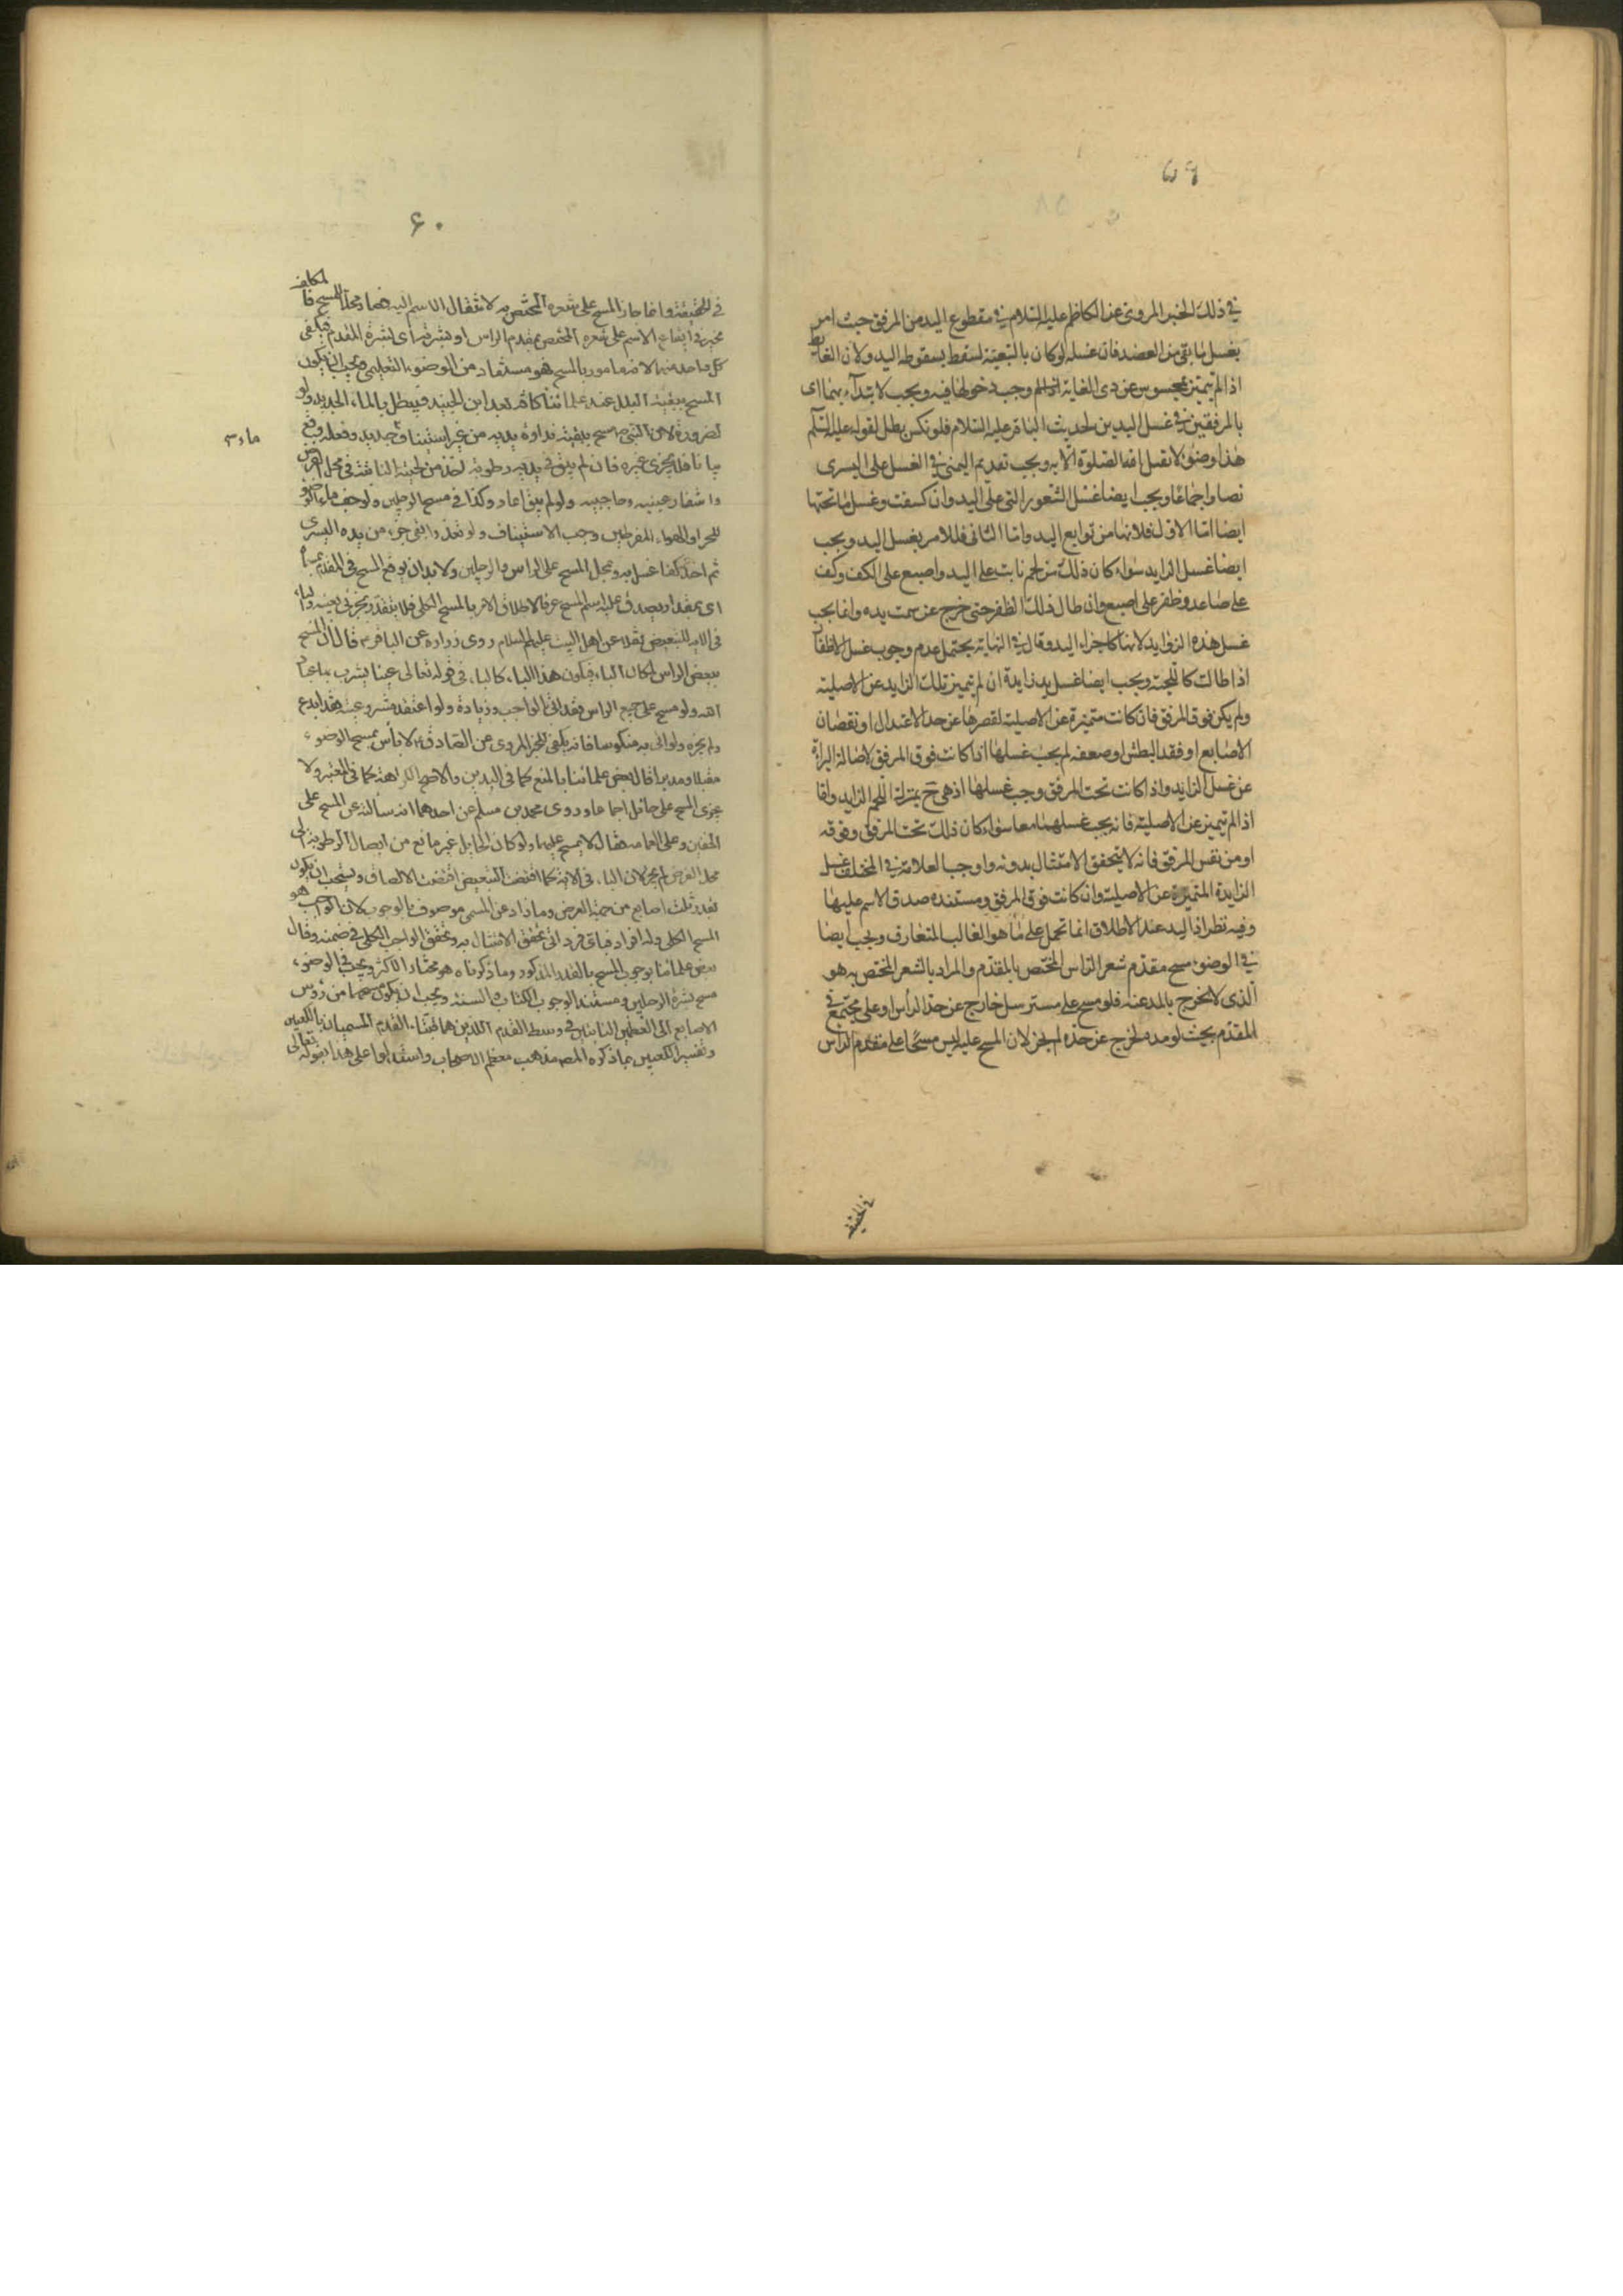 ٥٩
في ذلك الخبر المروي عن الكاظم عليه السلام في مقطوع اليد من المرفق حيث امر
بغسل ما بقى من العضد فان غسله لو كان بالتبعية لسقط بسقوطه اليد ولان الغاية
اذا لم تتميز بمحسوس عن ذى الغاية وجب دخولها فيه ويجب الابتداء بهما اى
بالمرفقين في غسل اليدين لحديث الباقر عليه السلام فلو نكس بطل لقوله عليه السلم
هذا وضوء لا تقبل الله الصلوة الا به ويجب تقديم اليمنى في الغسل على اليسرى
نصا واجماعا ويجب ايضا غسل الشعور التى على اليد وان كسفت وغسل ما تحتها
ايضا اما الاول فلانها من توابع اليد واما الثانى فللامر بغسل اليد ويجب
ايضا غسل الزايد سواء كان ذلك من لحم نابت على اليد واصبع على الكف وكف
على صاعد وظفر على اصبع وان طال ذلك الظفر حتى خرج عن سمت يده وانما يجب
غسل هذه الزوايد لانها كاجزاء اليد وقال في النهاية يحتمل عدم وجوب غسل الاظفار
اذا طالت كاللحية ويجب ايضا غسل يد زايدة ان لم تتميز تلك الزايد عن الاصلية
ولم يكن فوق المرفق فان كانت متميزة عن الاصلية لقصرها عن حد الاعتدال او نقصان
الاصابع او فقد البطش او ضعفه لم يجب غسلها اذا كانت فوق المرفق لاصالة البراءة
عن غسل الزايد واذا كانت تحت المرفق وجب غسلها اذ هى ح بمنزلة اللحم الزايد واما
اذا لم تتميز عن الاصلية فانه يجب غسلهما معا سواء كان ذلك تحت المرفق وفوقه
او من نفس المرفق فانه لا يتحقق الامتثال بدونه واوجب العلامة في المختلف غسل
الزايدة المتميزة عن الاصلية وان كانت فوق المرفق ومستنده صدق الاسم عليها
وفيه نظر اذ اليد عند الاطلاق انما تحمل على ما هو الغالب المتعارف ويجب ايضا
في الوضوء مسح مقدم شعر الراس المختص بالمقدم والمراد بالشعر المختص به هو
الذى لا يخرج بالمد عنه فلو مسح على مسترسل خارج عن حد الرأس او على مجتمع في
المقدم بحيث لو مده لخرج عن حده لم يجز لان المسح عليه ليس مسحا على مقدم الراس
في الحقيقة
٦٠
في الحقيقة وانما جاز المسح على شعره المختص به لانتقال الاسم اليه فهما محلا للمسح فالمكلف
مخير في ايقاع الاسم على شعره المختص بمقدم الراس او بشرته اى بشرة المقدم فيكفى
كل واحد منهما لانه مامور بالمسح هو مستفاد من الوضوء التعليمى ويجب ان يكون
المسح ببقية البلل عند علمائنا كافة بعد ابن الجنيد فيبطل بالماء الجديد ولو
لضرورة لان النبى ص مسح ببقية نداوة يديه من غير استيناف جديد وفعله وقع
بيانا فلا يجزى غيره فان لم يبق في يديه رطوبة اخذ من لحيته النابتة في محل الفرض
واشفار عينيه وحاجبيه ولو لم يبق اعاد وكذا في مسح الرجلين ولو جف ماء الوضوء
للحر او الهواء المفرطين وجب الاستيناف ولو تعذر ابقى جزء من يده اليسرى
ثم اخذ كفا غسل به وعجل المسح على الراس والرجلين ولا بد ان يوقع المسح في المقدم بمسماه
اى بمقدار يصدق عليه اسم المسح عرفا لاطلاق الامر بالمسح الكلى فلا يتقدر بجزئى بعينه والباء
في الاية للتبعيض نقلا عن اهل البيت عليهم السلام روى زرارة عن الباقر ع قال ان المسح
ببعض الراس لمكان الباء فيكون هذا الباء كالباء في قوله تعالى عينا يشرب بها عباد
الله ولو مسح على جميع الراس فقد اتى الواجب وزيادة ولو اعتقد مشروعيته فقد ابدع
ولم يجزه ولو اتى به منكوسا فانه يكفى للخبر المروى عن الصادق ع لا بأس بمسح الوضوء
مقبلا ومدبرا قال بعض علمائنا بالمنع كما في اليدين والاصح الكراهة كما في المعتبر ولا
يجزى المسح على حائل اجماعا وروى محمد بن مسلم عن احدهما انه سأله عن المسح على
الخفين وعلى العمامه فقال لا يمسح عليهما ولو كان الحايل غير مانع من ايصال الرطوبة الى
محل الفرض لم يجز لان الباء في الاية كما اقتضت التبعيض اقتضت الالصاق ويستحب ان يكون
بقدر ثلث اصابع من جهة العرض وما زاد عن المسمى موصوف بالوجوب لان الواجب هو
المسح الكلى وله افراد فباى فرد اتى تحقق الامتثال به وتحقق الواجب الكلى في ضمنه وقال
بعض علمائنا بوجوب المسح بالقدر المذكور وما ذكرناه هو مختار الاكثر ويجب في الوضوء
مسح بشرة الرجلين ومستند الوجوب الكتاب والسنة ويجب ان يكون مسحهما من رؤس
الاصابع الى العظمين النابتين في وسط القدم اللذين هما قبتا القدم المسميان بالكعبين
وتفسير الكعبين بما ذكره المصه مذهب معظم الاصحاب واستدلوا على هذا بقوله تعالى
ماء